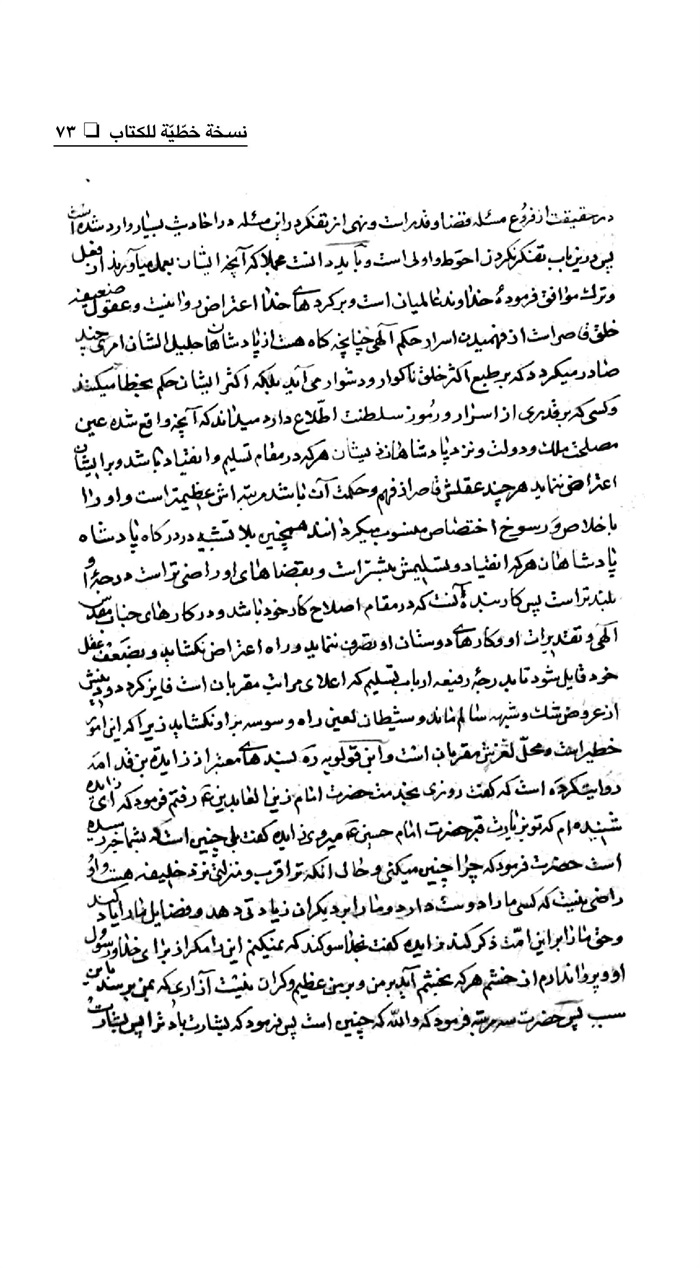 نسخة خطّيّة للكتاب ❑ ٧٣
در حقیقت از فروع مسئله قضا و قدر است و نهی از تفکر در این مسئله در احادیث بسیار وارد شده است
پس درین باب تفکر نکردن احوط و اولی است و باید دانست مجملا که آنچه ایشان بعمل میآورند از فعل
و ترک موافق فرمودهٔ خداوند عالمیان است و بر کردهای خدا اعتراض روا نیست و عقول ضعیفه
خلق قاصر است از فهمیدن اسرار حکم الهی چنانچه گاه هست از پادشاهان جلیل الشان امری چند
صادر میگردد که بر طبع اکثر خلق ناگوار و دشوار می آید بلکه اکثر ایشان حکم بخطا میکنند
و کسی که بر قدری از اسرار و رموز سلطنت اطلاع دارد میداند که آنچه واقع شده عین
مصلحت ملک و دولت و نزد پادشاهان ذیشان هر که در مقام تسلیم و انقیاد باشد و بر ایشان
اعتراض ننماید هر چند عقلش قاصر از فهم و حکمت آن باشد مرتبه اش عظیمتر است و او را
باخلاص و رسوخ اختصاص منسوب میگردانند همچنین بلا تشبیه در درگاه پادشاه
پادشاهان هر که انقیاد و تسلیمش بیشتر است و بقضاهای او راضی تر است درجهٔ او
بلندتر است پس کار بنده آنست که در مقام اصلاح کار خود باشد و در کارهای جناب مقدس
الهی و تقدیرات او و کارهای دوستان او تصرف ننماید و راه اعتراض نگشاید و بضعف عقل
خود قایل شود تا بدرجهٔ رفیعه ارباب تسلیم که اعلای مراتب مقربان است فایز گردد و دینش
از عروض شک و شبهه سالم ماند و شیطان لعین راه وسوسه بر او نگشاید زیرا که این امور
خطیر است و محل لغزش مقربان است و ابن قولویه ره بسندهای معتبر از زایده بن قدامه
روایت کرده است که گفت روزی بخدمت حضرت امام زین العابدین ع رفتم فرمود که ای زایده
شنیده ام که تو بزیارت قبر حضرت امام حسین ع میروی زایده گفت بلی چنین است که بشما خبر رسیده
است حضرت فرمود که چرا چنین میکنی و حال آنکه ترا قرب و منزلتی نزد خلیفه هست و او
راضی نیست که کسی ما را دوست دارد و ما را بر دیگران زیادتی دهد و فضایل ما را یاد کند
و حق ما را بر این امت ذکر کند زایده گفت بخدا سوگند که نمیکنم این را مگر از برای خدا و رسول
او و پروا ندارم از خشم هر که بخشم آید بر من و بر من عظیم و گران نیست آزاری که بمن برسد باین
سبب پس حضرت سه مرتبه فرمود که والله که چنین است پس فرمود که بشارت باد ترا پس بشارت